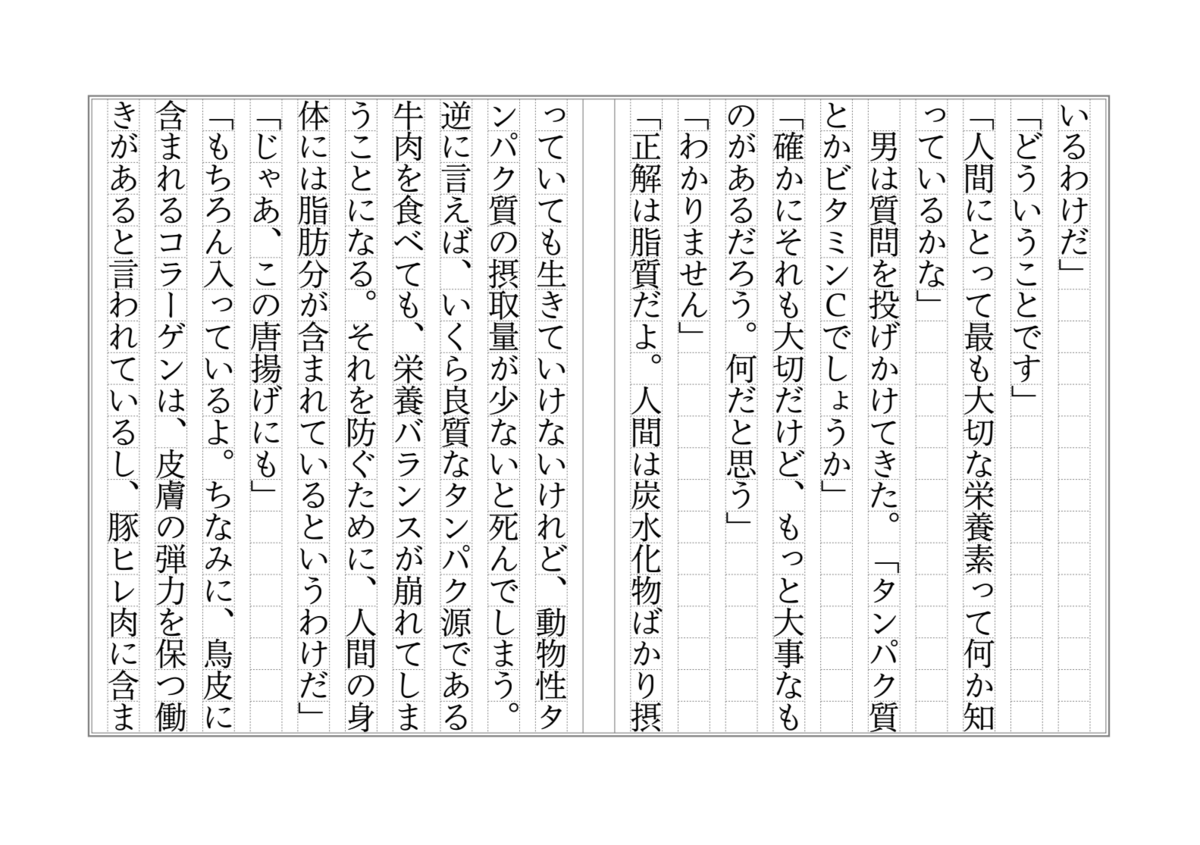 いるわけだ」
「どういうことです」
「人間にとって最も大切な栄養素って何か知
っているかな」
　男は質問を投げかけてきた。「タンパク質
とかビタミンCでしょうか」
「確かにそれも大切だけど、もっと大事なも
のがあるだろう。何だと思う」
「わかりません」
「正解は脂質だよ。人間は炭水化物ばかり摂
っていても生きていけないけれど、動物性タ
ンパク質の摂取量が少ないと死んでしまう。
逆に言えば、いくら良質なタンパク源である
牛肉を食べても、栄養バランスが崩れてしま
うことになる。それを防ぐために、人間の身
体には脂肪分が含まれているというわけだ」
「じゃあ、この唐揚げにも」
「もちろん入っているよ。ちなみに、鳥皮に
含まれるコラーゲンは、皮膚の弾力を保つ働
きがあると言われているし、豚ヒレ肉に含ま